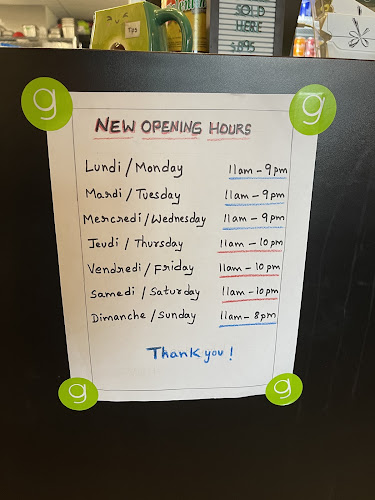 Tips
SOLD
HERE
g
g
NEW OPENING HOURS
Lundi / Monday 11am - 9pm
Mardi / Tuesday 11am - 9pm
Mercredi / Wednesday 11am - 9pm
Jeudi / Thursday 11am - 10pm
Vendredi / Friday 11am - 10pm
Samedi / Saturday 11am - 10pm
Dimanche / Sunday 11am - 8pm
Thank you !
g
g